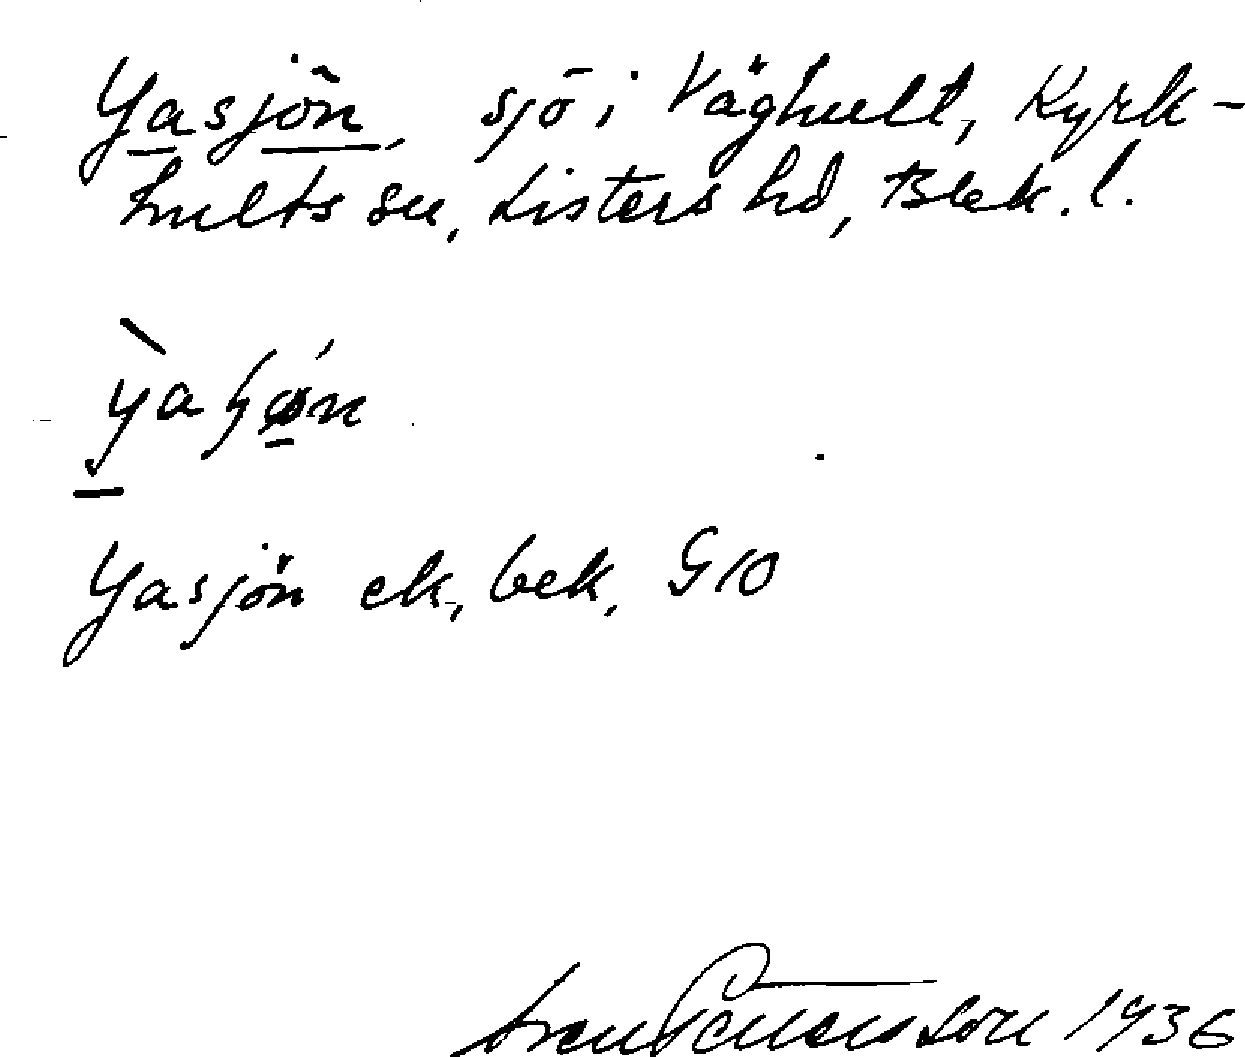 Yasjön, sjö i Våghult, Kyrk-
hults sn, Listers hd, Blek. l.
Yasjön ek, bek, G10
1936